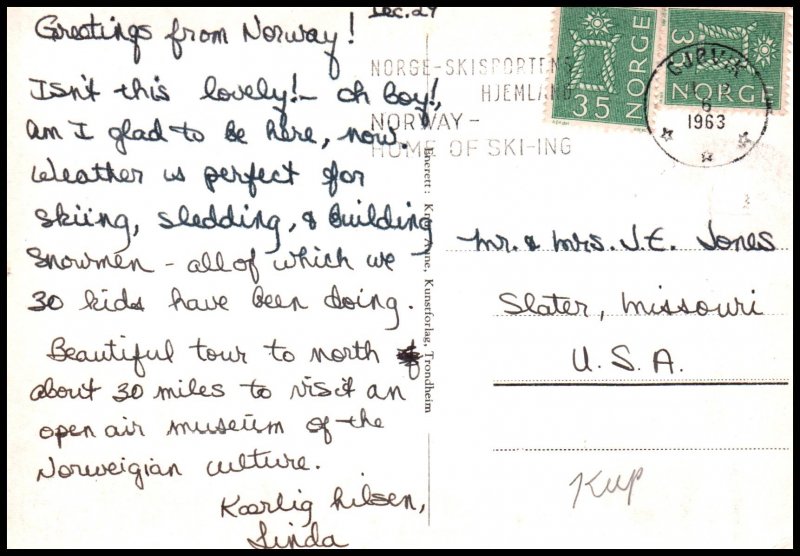 Dec. 29
Greetings from Norway!
Isn't this lovely!- oh boy!,
am I glad to be here, now.
Weather is perfect for
skiing, sledding, & building
snowmen - all of which we
30 kids have been doing.
Beautiful tour to north
about 30 miles to visit an
open air museum of the
Norweigian culture.
Kaarlig hilsen,
Linda
NORGE-SKISPORTENS
HJEMLAND
NORWAY-
HOME OF SKI-ING
35 NORGE
NORGE
6
1963
Enerett: Kunstforlag, Trondheim
Mr. & Mrs. J.E. Jones
Slater, Missouri
U.S.A.